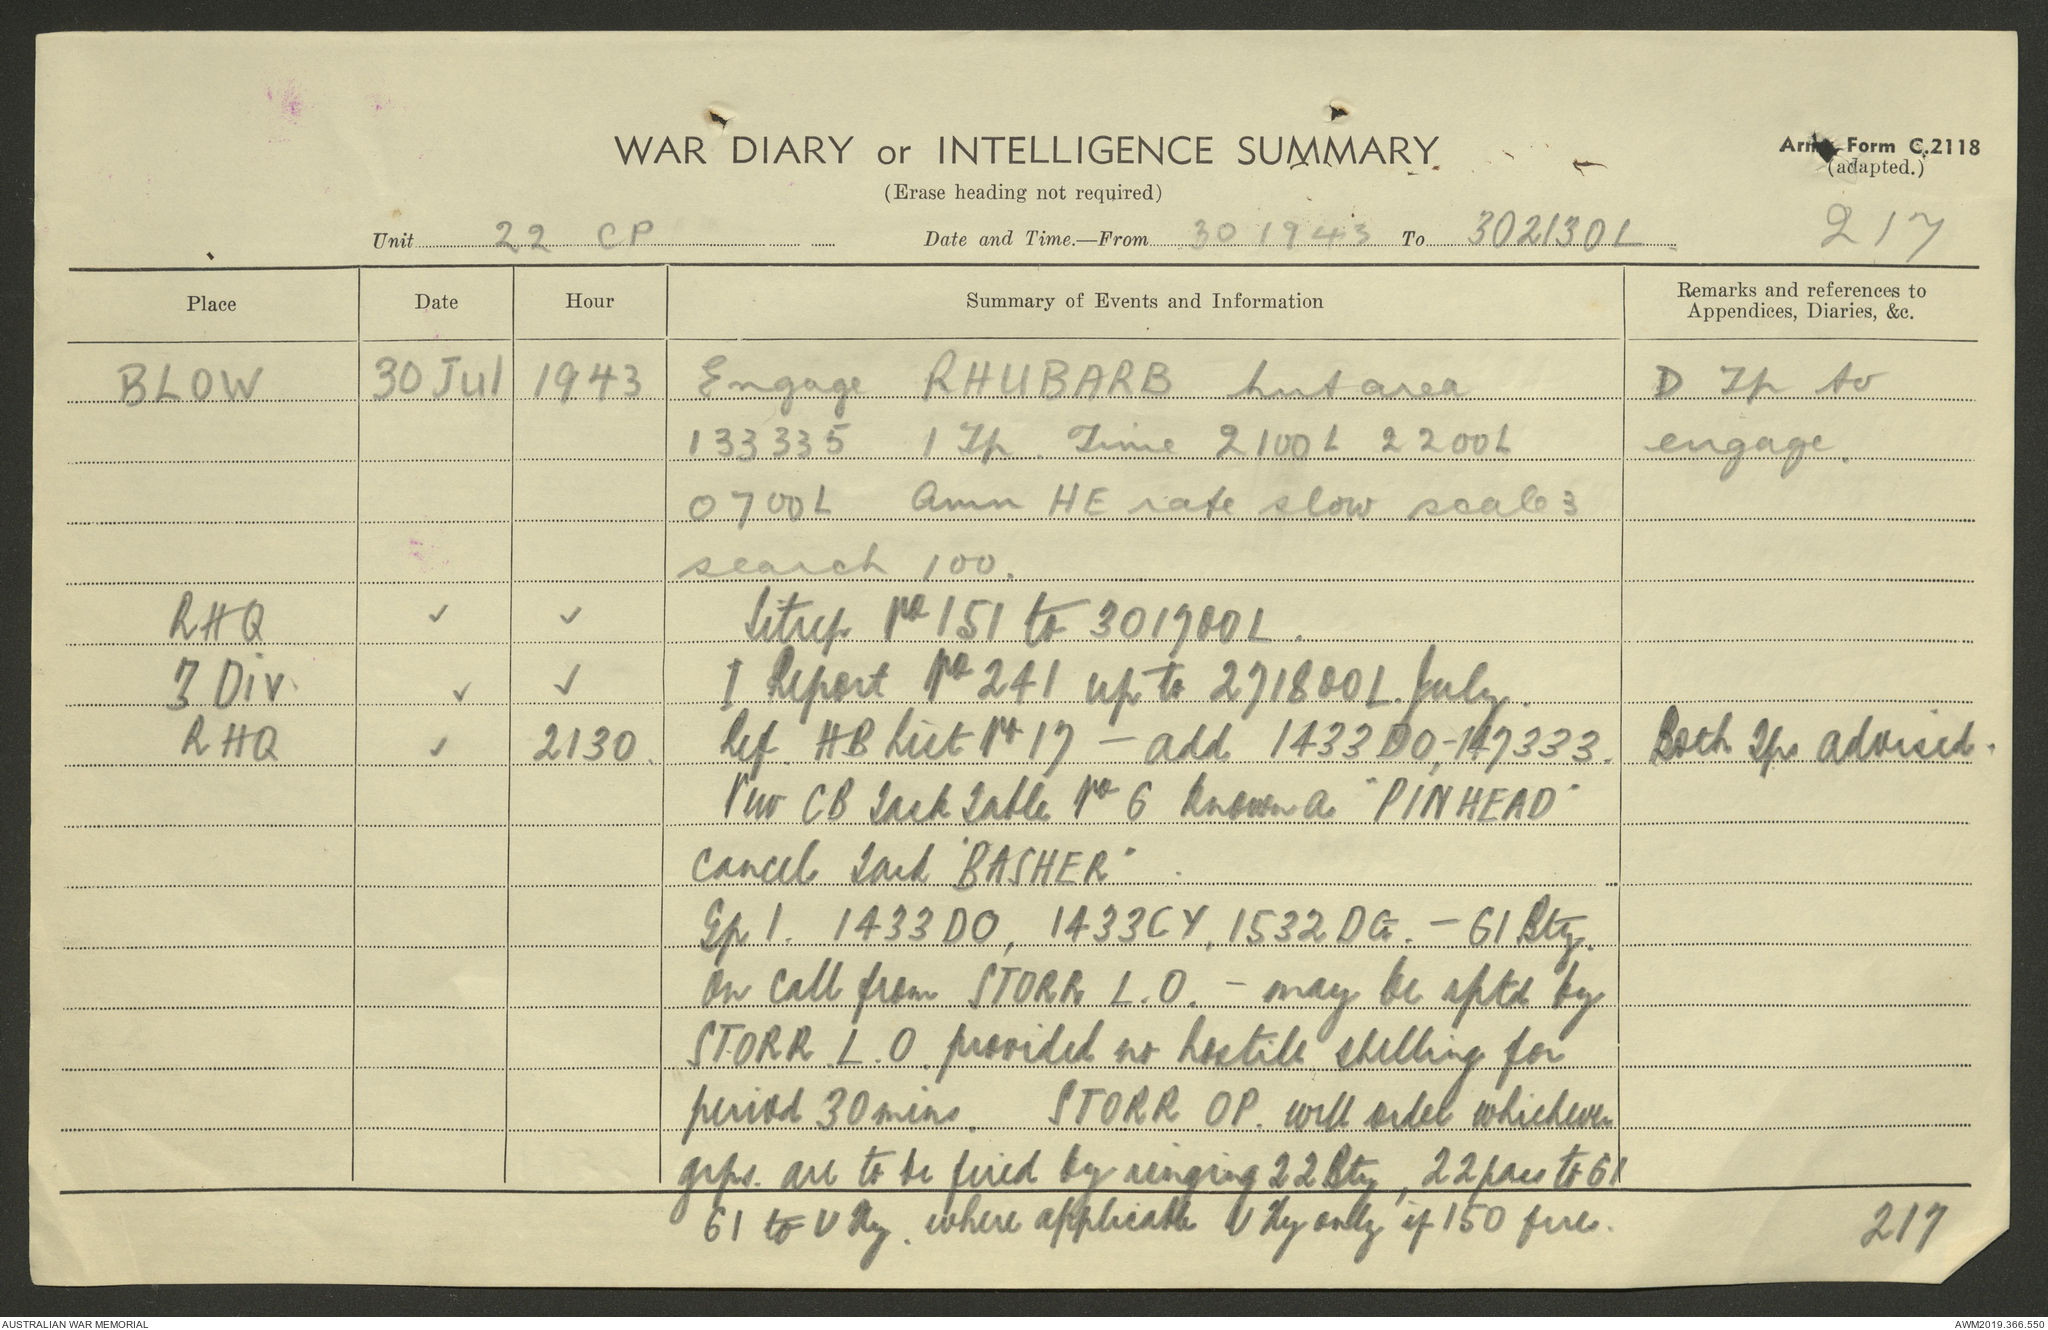 WAR DIARY or INTELLIGENCE SUMMARY
Army Form C.2118
(adapted.)
(Erase heading not required)
Unit 22 CP Date and Time.—From 301943 To 302130L 217
Place Date Hour Summary of Events and Information Remarks and references to Appendices, Diaries, &c.
BLOW 30 Jul 1943 Engage RHUBARB hut area D Tp to
133335 1 Tp. Time 2100L 2200L engage.
0700L Amn HE rate slow scale 3
search 100.
RHQ ✓ ✓ Sitrep No 151 to 301700L.
3 Div. ✓ ✓ I Report No 241 up to 271800L July.
RHQ ✓ 2130. Ref. HB List No 17 – add 1433DO,-147333. Both Tps advised.
New CB Task Table No 6 known as "PINHEAD"
Cancel Task "BASHER".
Gp 1. 1433DO, 1433CY, 1532DG. – 61 Bty.
On call from STORR L.O. – may be rptd by
STORR L.O. provided no hostile shelling for
period 30 mins. STORR OP. will order whichever
grps. are to be fired by ringing 22 Bty, 22 pass to 61
61 to U Hy. where applicable U Hy only if 150 fires.
217
AUSTRALIAN WAR MEMORIAL
AWM2019.366.550